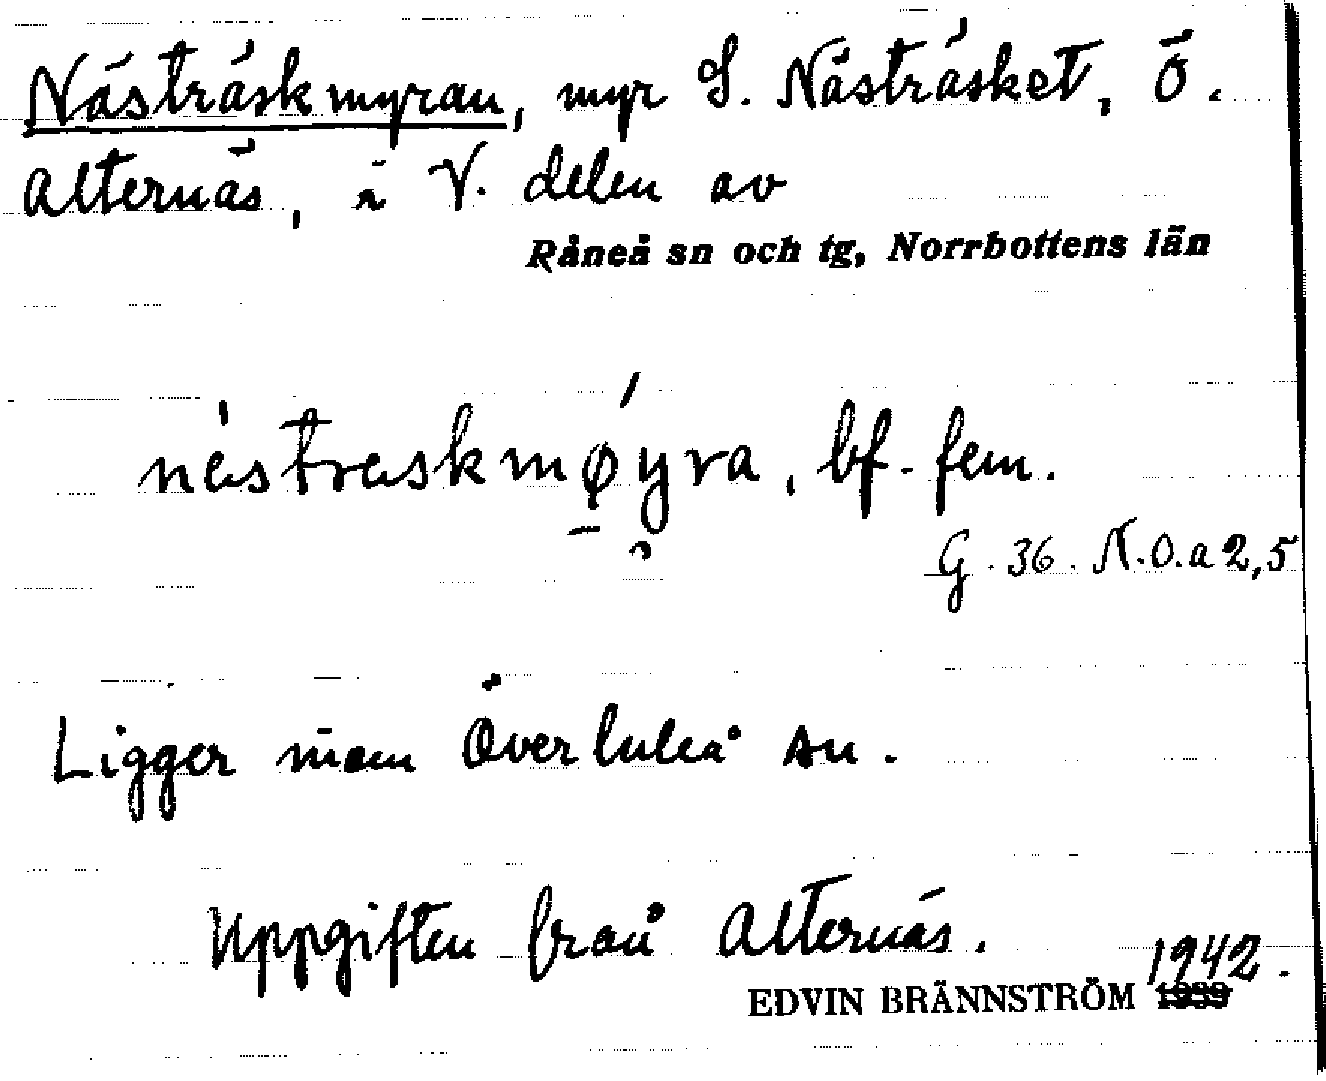 Nästräskmyran, myr S. Nästräsket, Ö.
Alternäs, i V. delen av
Råneå sn och tg, Norrbottens län
næstræskmøyra, bf. fem.
G. 36. N.O.a 2,5
Ligger inom Överluleå sn.
Uppgiften från Alternäs.
1942.
EDVIN BRÄNNSTRÖM 1939